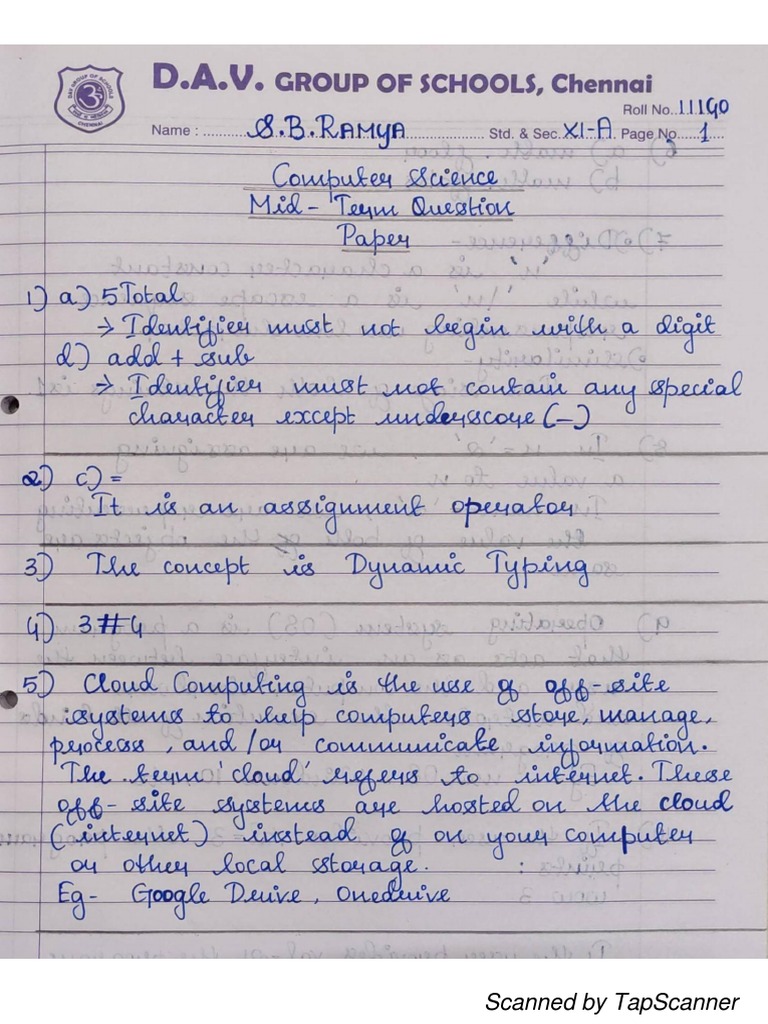 D.A.V. GROUP OF SCHOOLS, Chennai
Roll No. 11190
Name : S.B.RAMYA Std. & Sec. XI-A Page No. 1
Computer Science
Mid-Term Question
Paper
1) a) 5Total
→ Identifier must not begin with a digit
d) add + sub
→ Identifier must not contain any special
character except underscore (_)
2) c) =
It is an assignment operator
3) The concept is Dynamic Typing
4) 3#4
5) Cloud Computing is the use of off-site
systems to help computers store, manage,
process, and /or communicate information.
The term 'cloud' refers to internet. These
off-site systems are hosted on the cloud
(internet) instead of on your computer
or other local storage.
Eg- Google Drive, Onedrive
Scanned by TapScanner